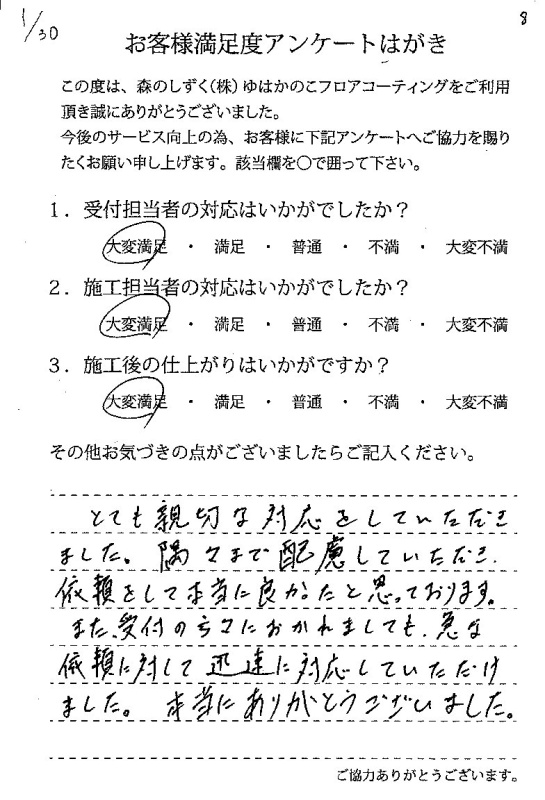 1/30
8
お客様満足度アンケートはがき
この度は、森のしずく(株)ゆはかのこフロアコーティングをご利用
頂き誠にありがとうございました。
今後のサービス向上の為、お客様に下記アンケートへご協力を賜り
たくお願い申し上げます。該当欄を○で囲って下さい。
1．受付担当者の対応はいかがでしたか？
大変満足 ・ 満足 ・ 普通 ・ 不満 ・ 大変不満
2．施工担当者の対応はいかがでしたか？
大変満足 ・ 満足 ・ 普通 ・ 不満 ・ 大変不満
3．施工後の仕上がりはいかがですか？
大変満足 ・ 満足 ・ 普通 ・ 不満 ・ 大変不満
その他お気づきの点がございましたらご記入ください。
とても親切な対応をしていただき
ました。隅々まで配慮していただき、
依頼をして本当に良かったと思っております。
また、受付の方々におかれましても、急な
依頼に対して迅速に対応していただけ
ました。本当にありがとうございました。
ご協力ありがとうございます。